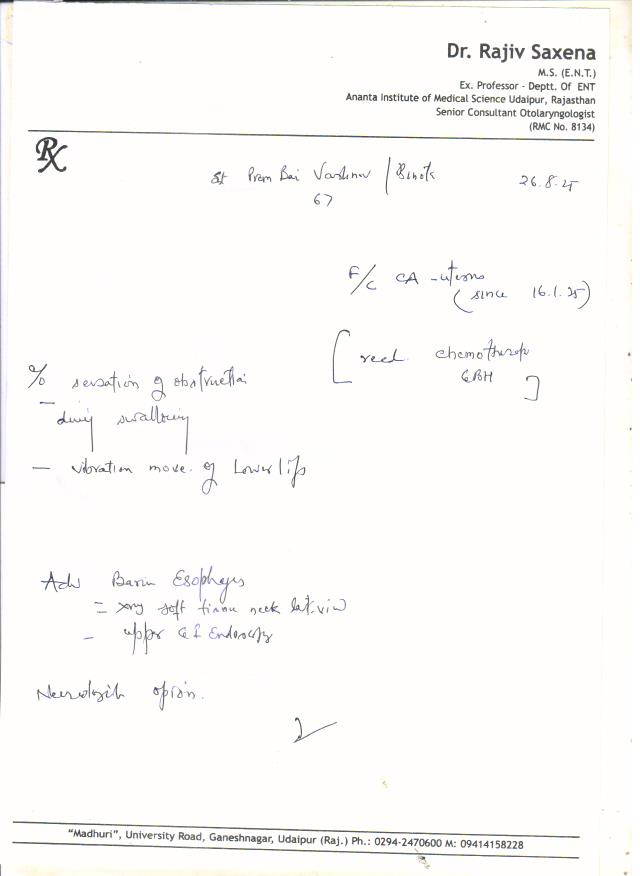 Dr. Rajiv Saxena
M.S. (E.N.T.)
Ex. Professor - Deptt. Of ENT
Ananta Institute of Medical Science Udaipur, Rajasthan
Senior Consultant Otolaryngologist
(RMC No. 8134)
Rx
Prem Bai Vaishnav /
67
26.8.25
F/C CA - uterus
(since 16.1.25)
[recd. chemotherap
GBH]
c/o sensation of obstruction
during swallowing
— vibration move. of Lower lips
Adv Barium Esophagus
= xray soft tissue neck lat. view
- upper G I Endoscopy
Neurologist opinion.
"Madhuri", University Road, Ganeshnagar, Udaipur (Raj.) Ph.: 0294-2470600 M: 09414158228